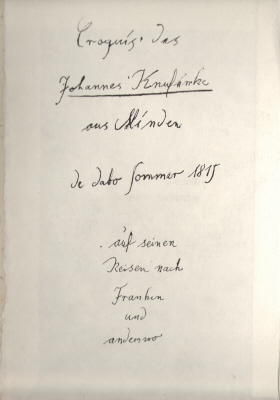 Croquis' das
Johannes Knufinke
aus Minden
de dato Sommer 1815
. auf seinen
Reisen nach
Franken
und
anderswo